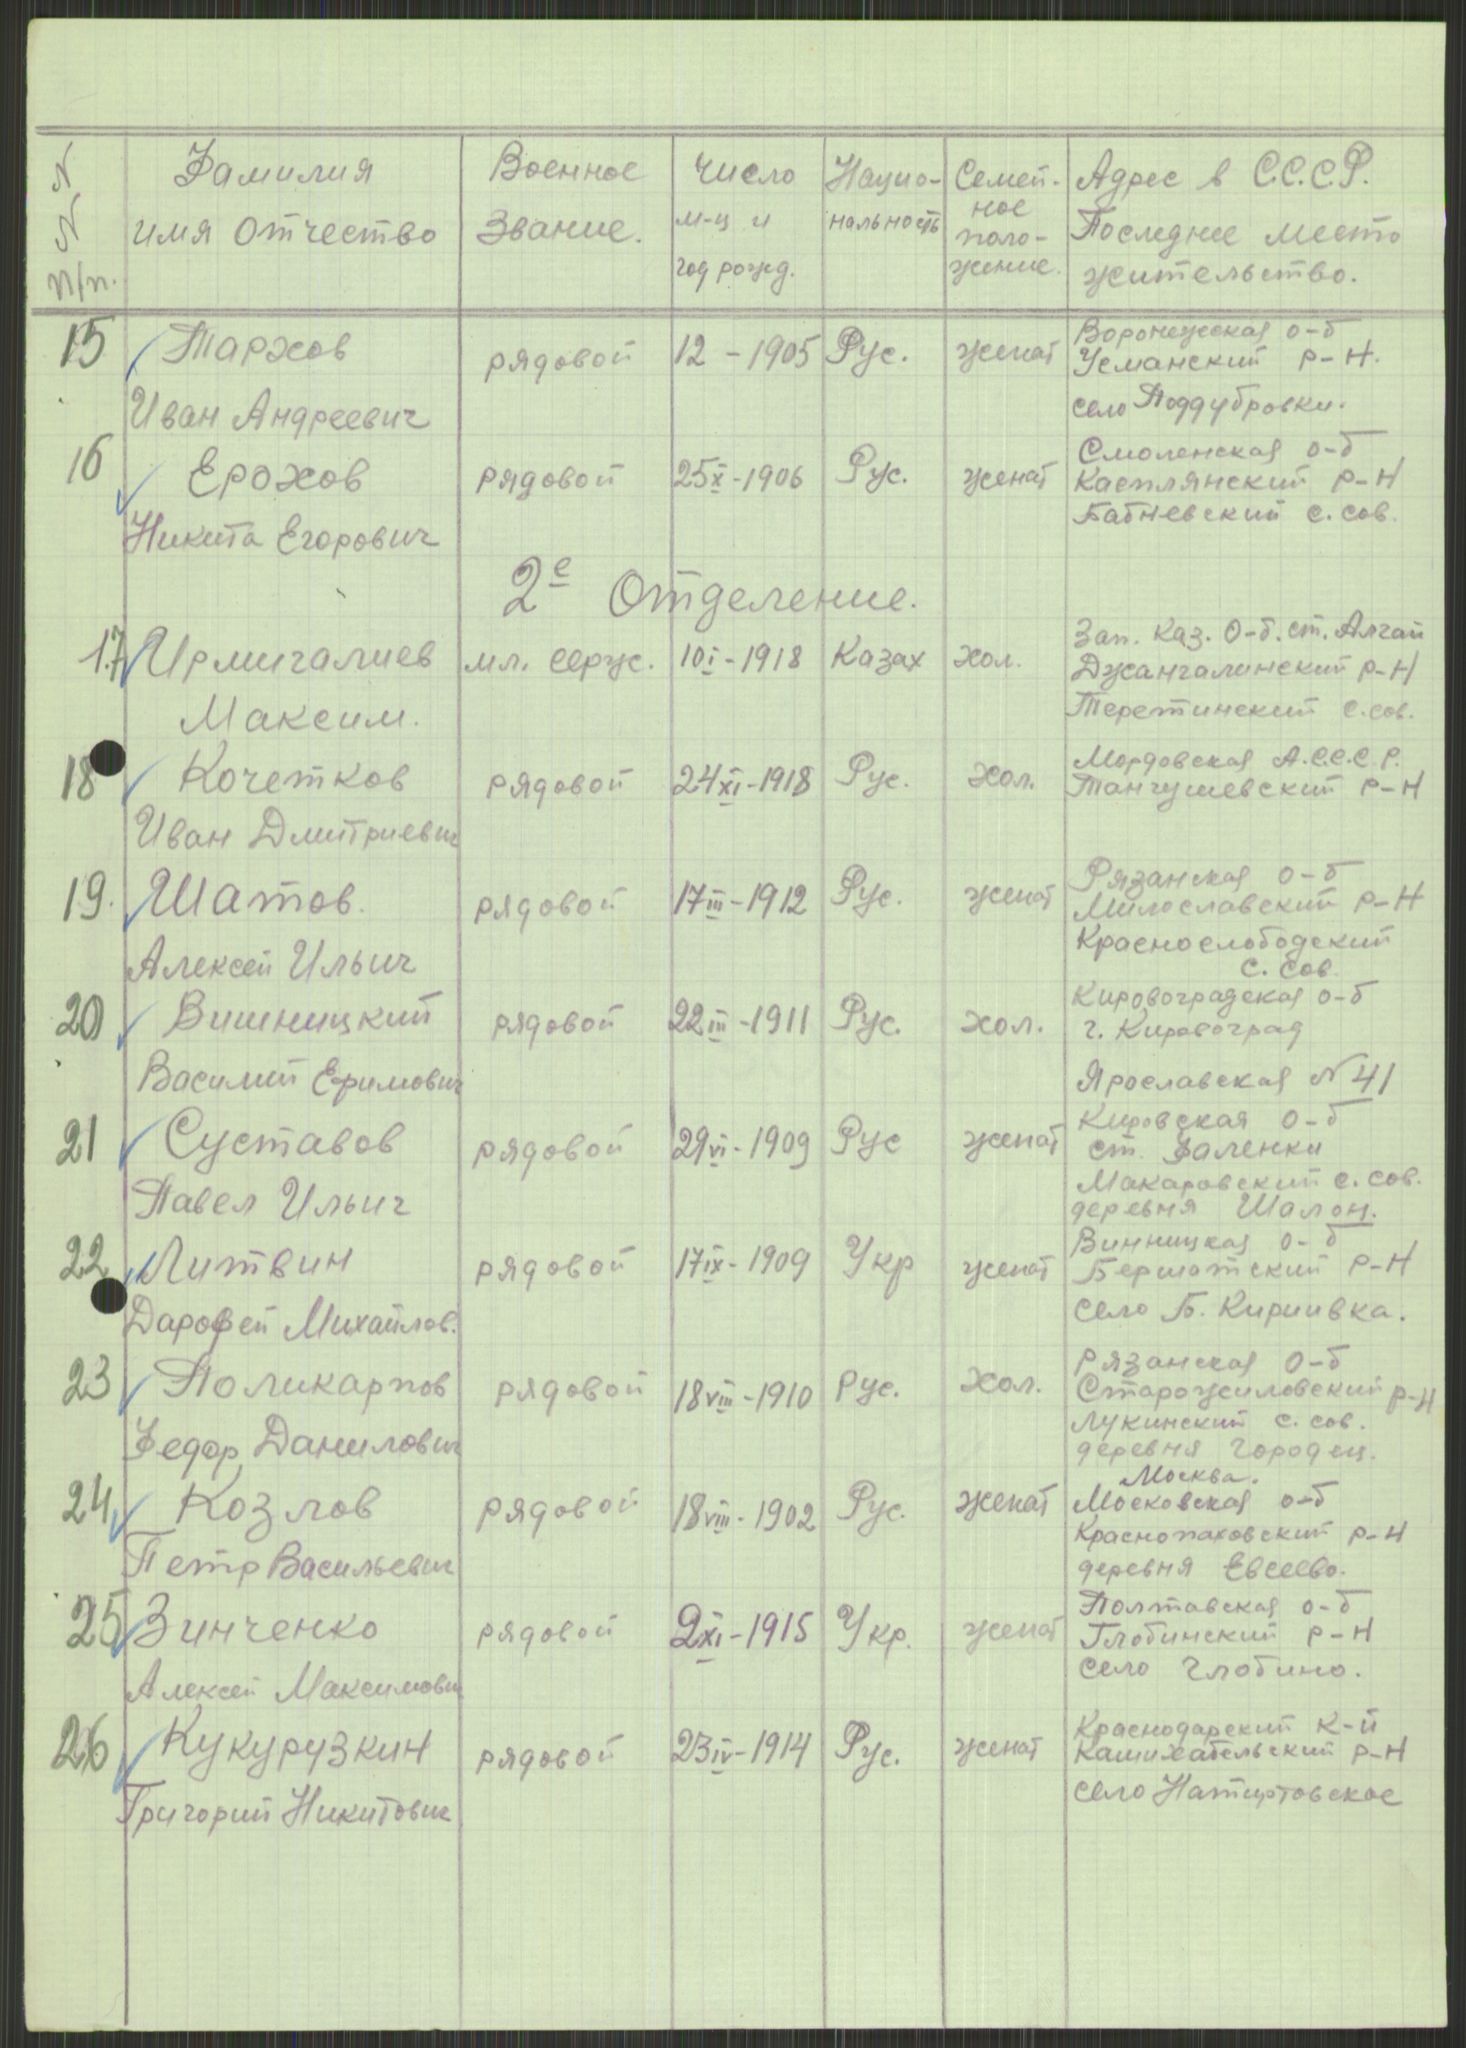 N N п/п. Фамилия имя отчество Военное Звание. Число м-ц и год рожд. Нацио-нальность Семей-ное поло-жение. Адрес в С.С.С.Р. Последнее место жительство.
15 Тархов рядовой 12 - 1905 Рус. женат Воронежская о-б
Усманский р-н.
Иван Андреевич село Поддубровки.
16 Ерохов рядовой 25 X - 1906 Рус. женат Смоленская о-б
Касплянский р-н
Никита Егорович Бабневский с. сов.
2е Отделение.
17 Ирмигалиев мл. серж. 10 I - 1918 Казах хол. Зап. Каз. о-б. ст. Алгай
Джангалинский р-н
Максим. Теретинский с. сов.
18 Кочетков рядовой 24 XI - 1918 Рус. хол. Мордовская А.С.С.Р.
Тангушевский р-н
Иван Дмитриевич
19. Шатов. рядовой 17 III - 1912 Рус. женат Рязанская о-б
Милославский р-н
Алексей Ильич Краснослободский
с. сов.
20 Вишницкий рядовой 22 III - 1911 Рус. хол. Кировоградская о-б
г. Кировоград
Василий Ефимович Ярославская N 41
21 Суставов рядовой 29 VI - 1909 Рус женат Кировская о-б
ст. Фаленки
Павел Ильич Макаровский с. сов.
деревня Шалон.
22 Литвин рядовой 17 IX - 1909 Укр женат Винницкая о-б
Бершатский р-н
Дарофей Михайлов. село Б. Кириивка.
23 Поликарпов рядовой 18 VIII - 1910 Рус. хол. Рязанская о-б
Старожиловский р-н
Федор Данилович Лукинский с. сов.
деревня Городец.
24 Козлов рядовой 18 VIII - 1902 Рус. женат Москва.
Московская о-б
Краснопаховский р-н
Петр Васильевич деревня Евсеево.
25 Зинченко рядовой 2 XI - 1915 Укр. женат Полтавская о-б
Глобинский р-н
Алексей Максимович село Глобино.
26 Кукурузкин рядовой 23 IV - 1914 Рус. женат Краснодарский к-й
р-н
Григорий Никитович село